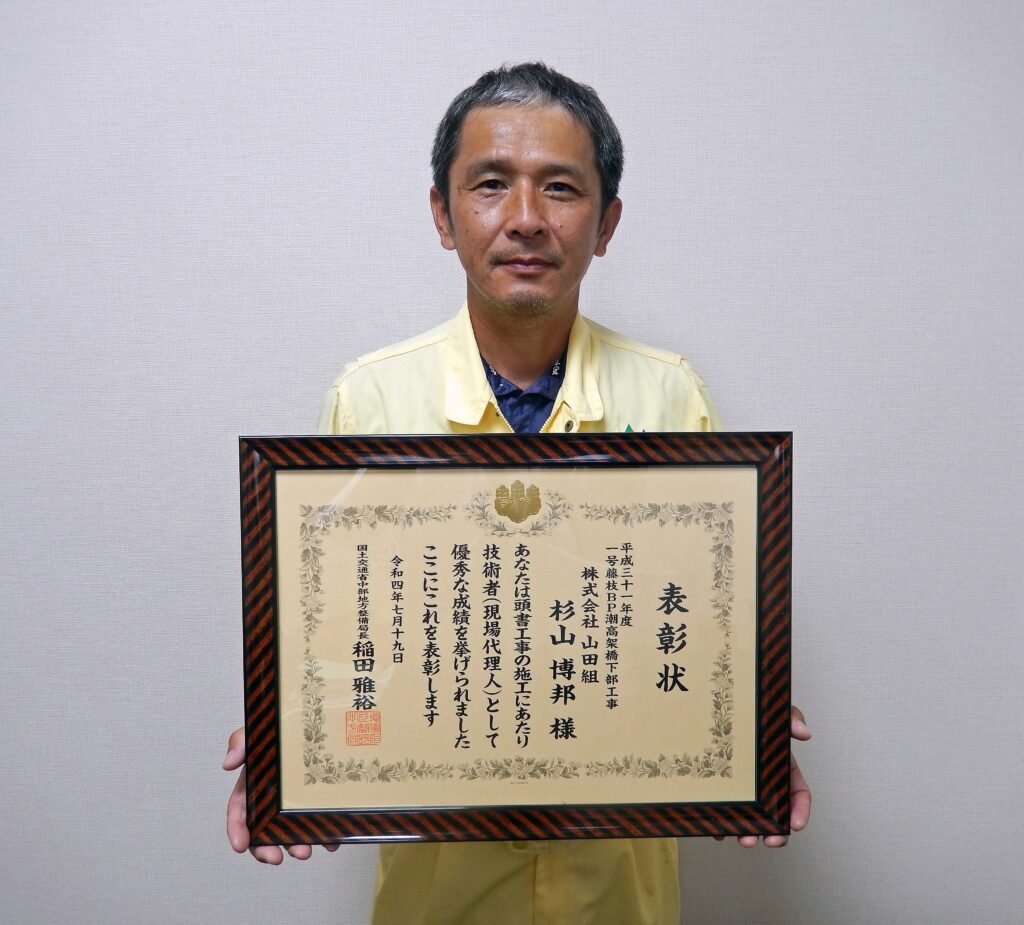 表彰状
平成三十一年度
一号藤枝BP潮高架橋下部工事
株式会社 山田組
杉山 博邦 様
あなたは頭書工事の施工にあたり
技術者(現場代理人)として
優秀な成績を挙げられました
ここにこれを表彰します
令和四年七月十九日
国土交通省中部地方整備局長 稲田 雅裕